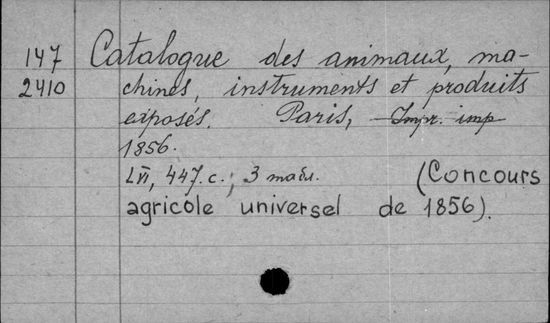 147 Catalogue des animaux, ma-
2410 chines, instruments et produits
exposés. Paris, Impr. imp
1856.
LVI, 447 с.; 3 табл. (Concours
agricole universel de 1856).